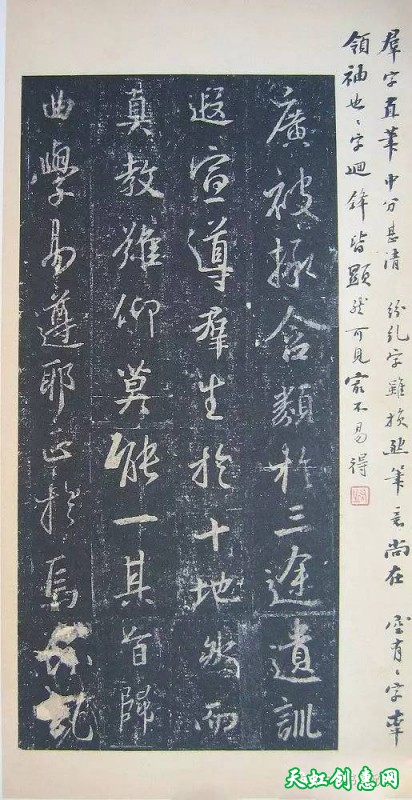 羣字直筆中分甚清 紛糺字雖損然筆意尚在 有〻字
領袖也〻字迴鋒皆顯然可見最不易得
廣被拯含類於三途遺訓
遐宣導羣生於十地然而
真教難仰莫能一其旨歸
曲學易遵耶正於焉紛糺
天虹创意网